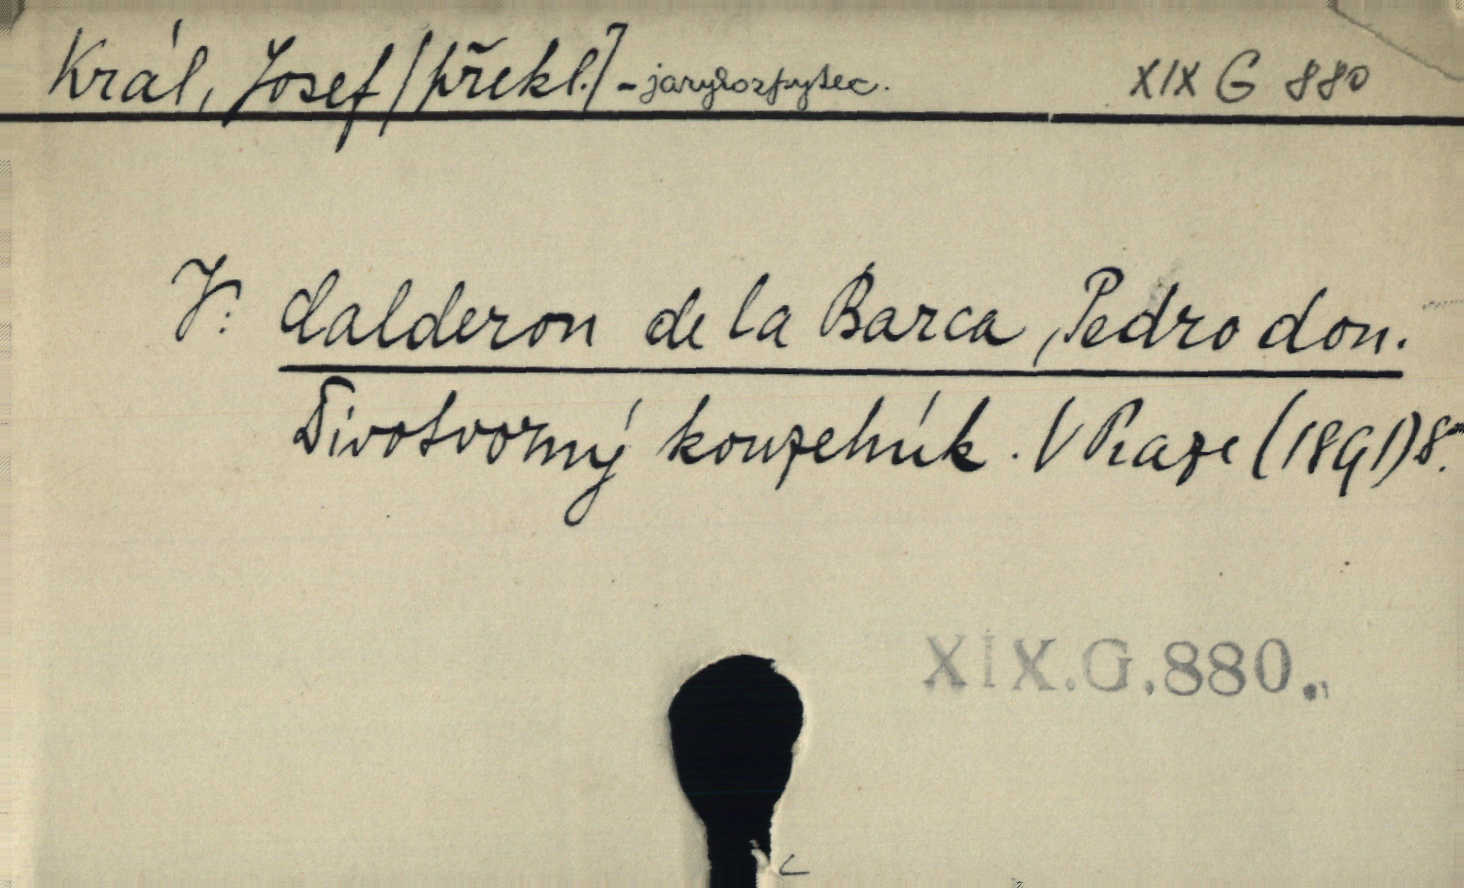 Král, Josef [překl.] - jazykozpytec. XIX G 880
V: Calderon de la Barca, Pedro don.
Divotvorný kouzelník. V Praze (1891) 8º.
XIX.G.880.